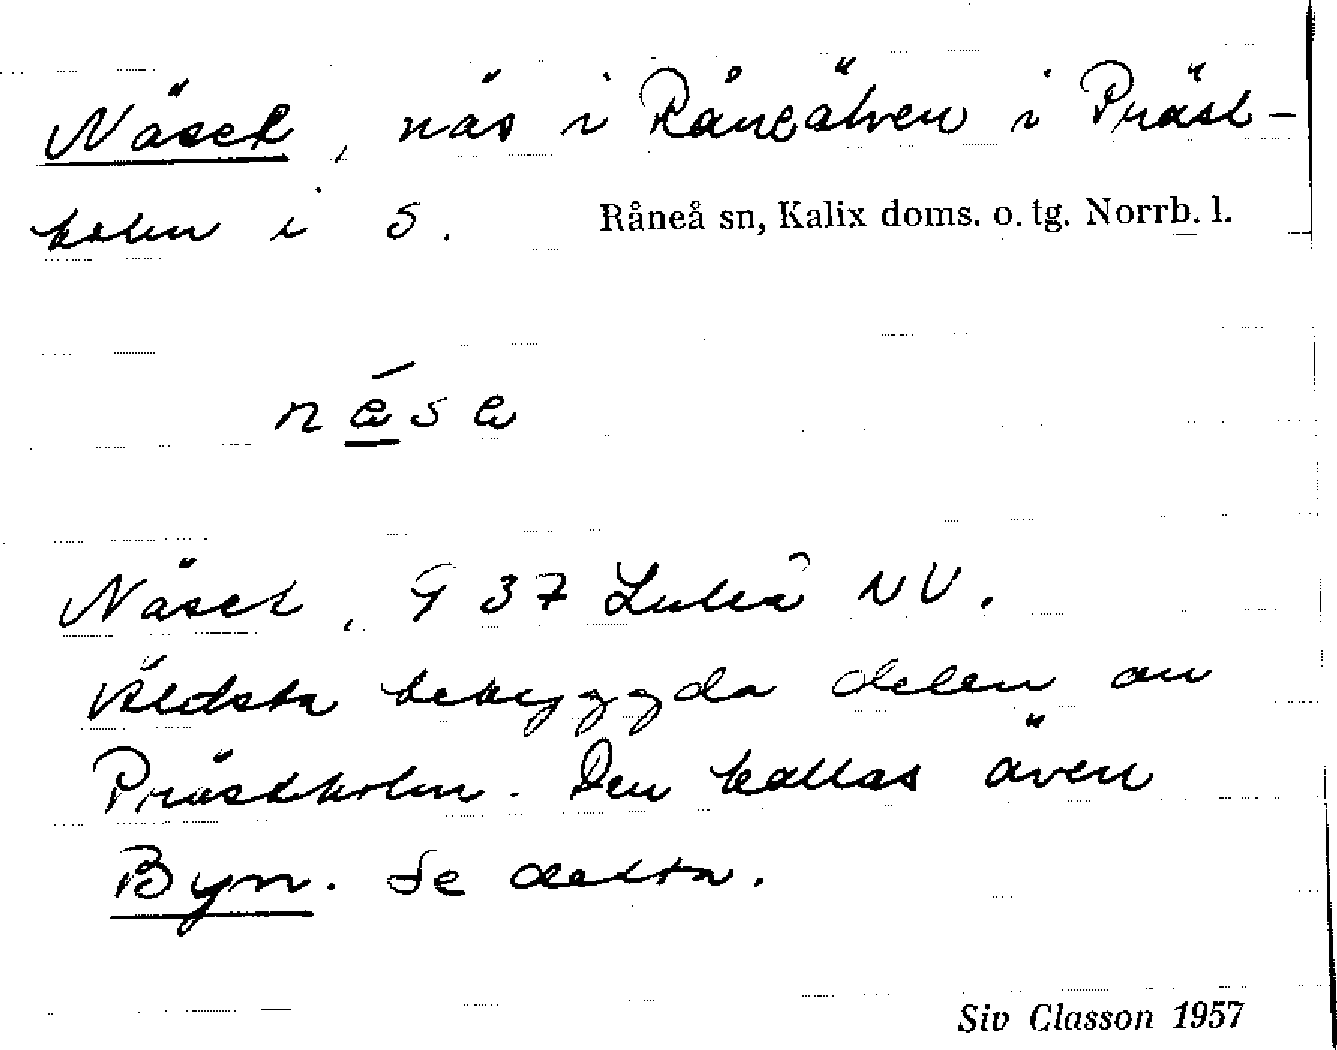 Näset, näs i Råneälven i Präst-
holm i S. Råneå sn, Kalix doms. o. tg. Norrb. l.
nǽ̲sæ
Näset, G 37 Luleå NV.
Äldsta bebyggda delen av
Prästholm. Den kallas även
Byn. Se detta.
Siv Classon 1957